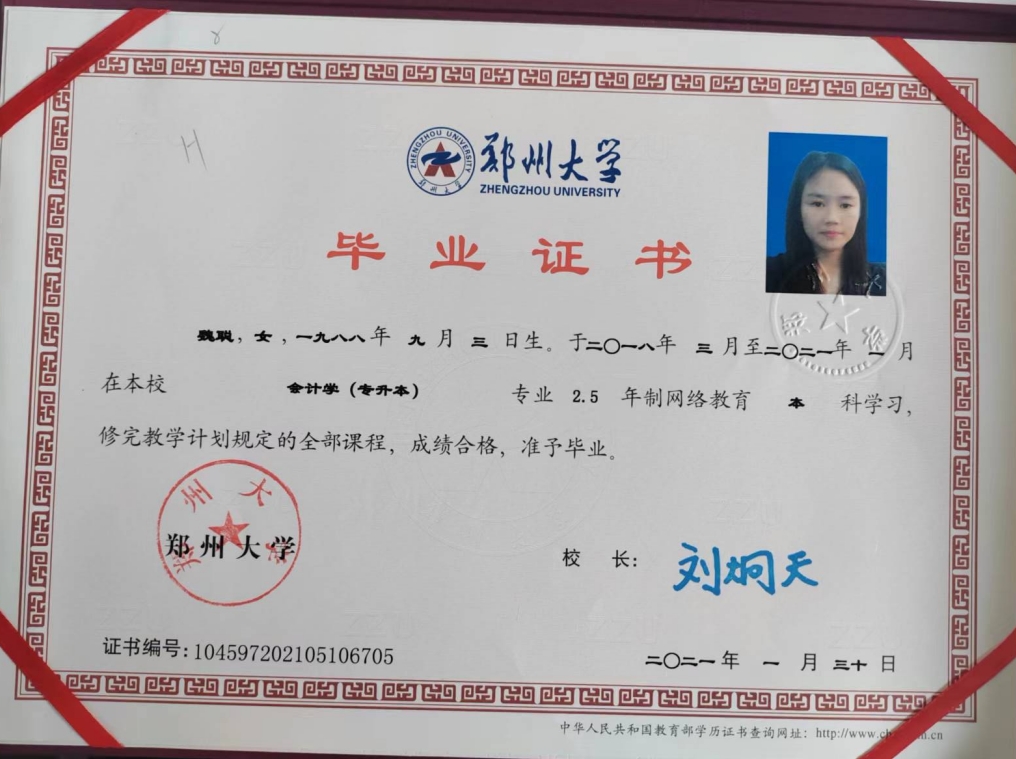 ZHENGZHOU UNIVERSITY
郑州大学
郑州大学
ZHENGZHOU UNIVERSITY
毕业证书
魏聪，女，一九八八年 九 月 三 日生。于二〇一八年 三 月至二〇二一年 一 月
在本校 会计学（专升本） 专业 2.5 年制网络教育 本 科学习，
修完教学计划规定的全部课程，成绩合格，准予毕业。
郑州大学
郑州大学
校 长：刘炯天
证书编号：104597202105106705
二〇二一年 一 月 三十 日
中华人民共和国教育部学历证书查询网址：http://www.